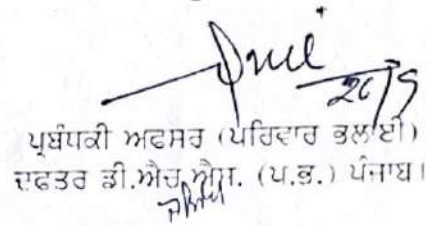 26/9
ਪ੍ਰਬੰਧਕੀ ਅਫਸਰ (ਪਰਿਵਾਰ ਭਲਾਈ)
ਦਫਤਰ ਡੀ.ਐਚ.ਐਸ. (ਪ.ਭ.) ਪੰਜਾਬ।